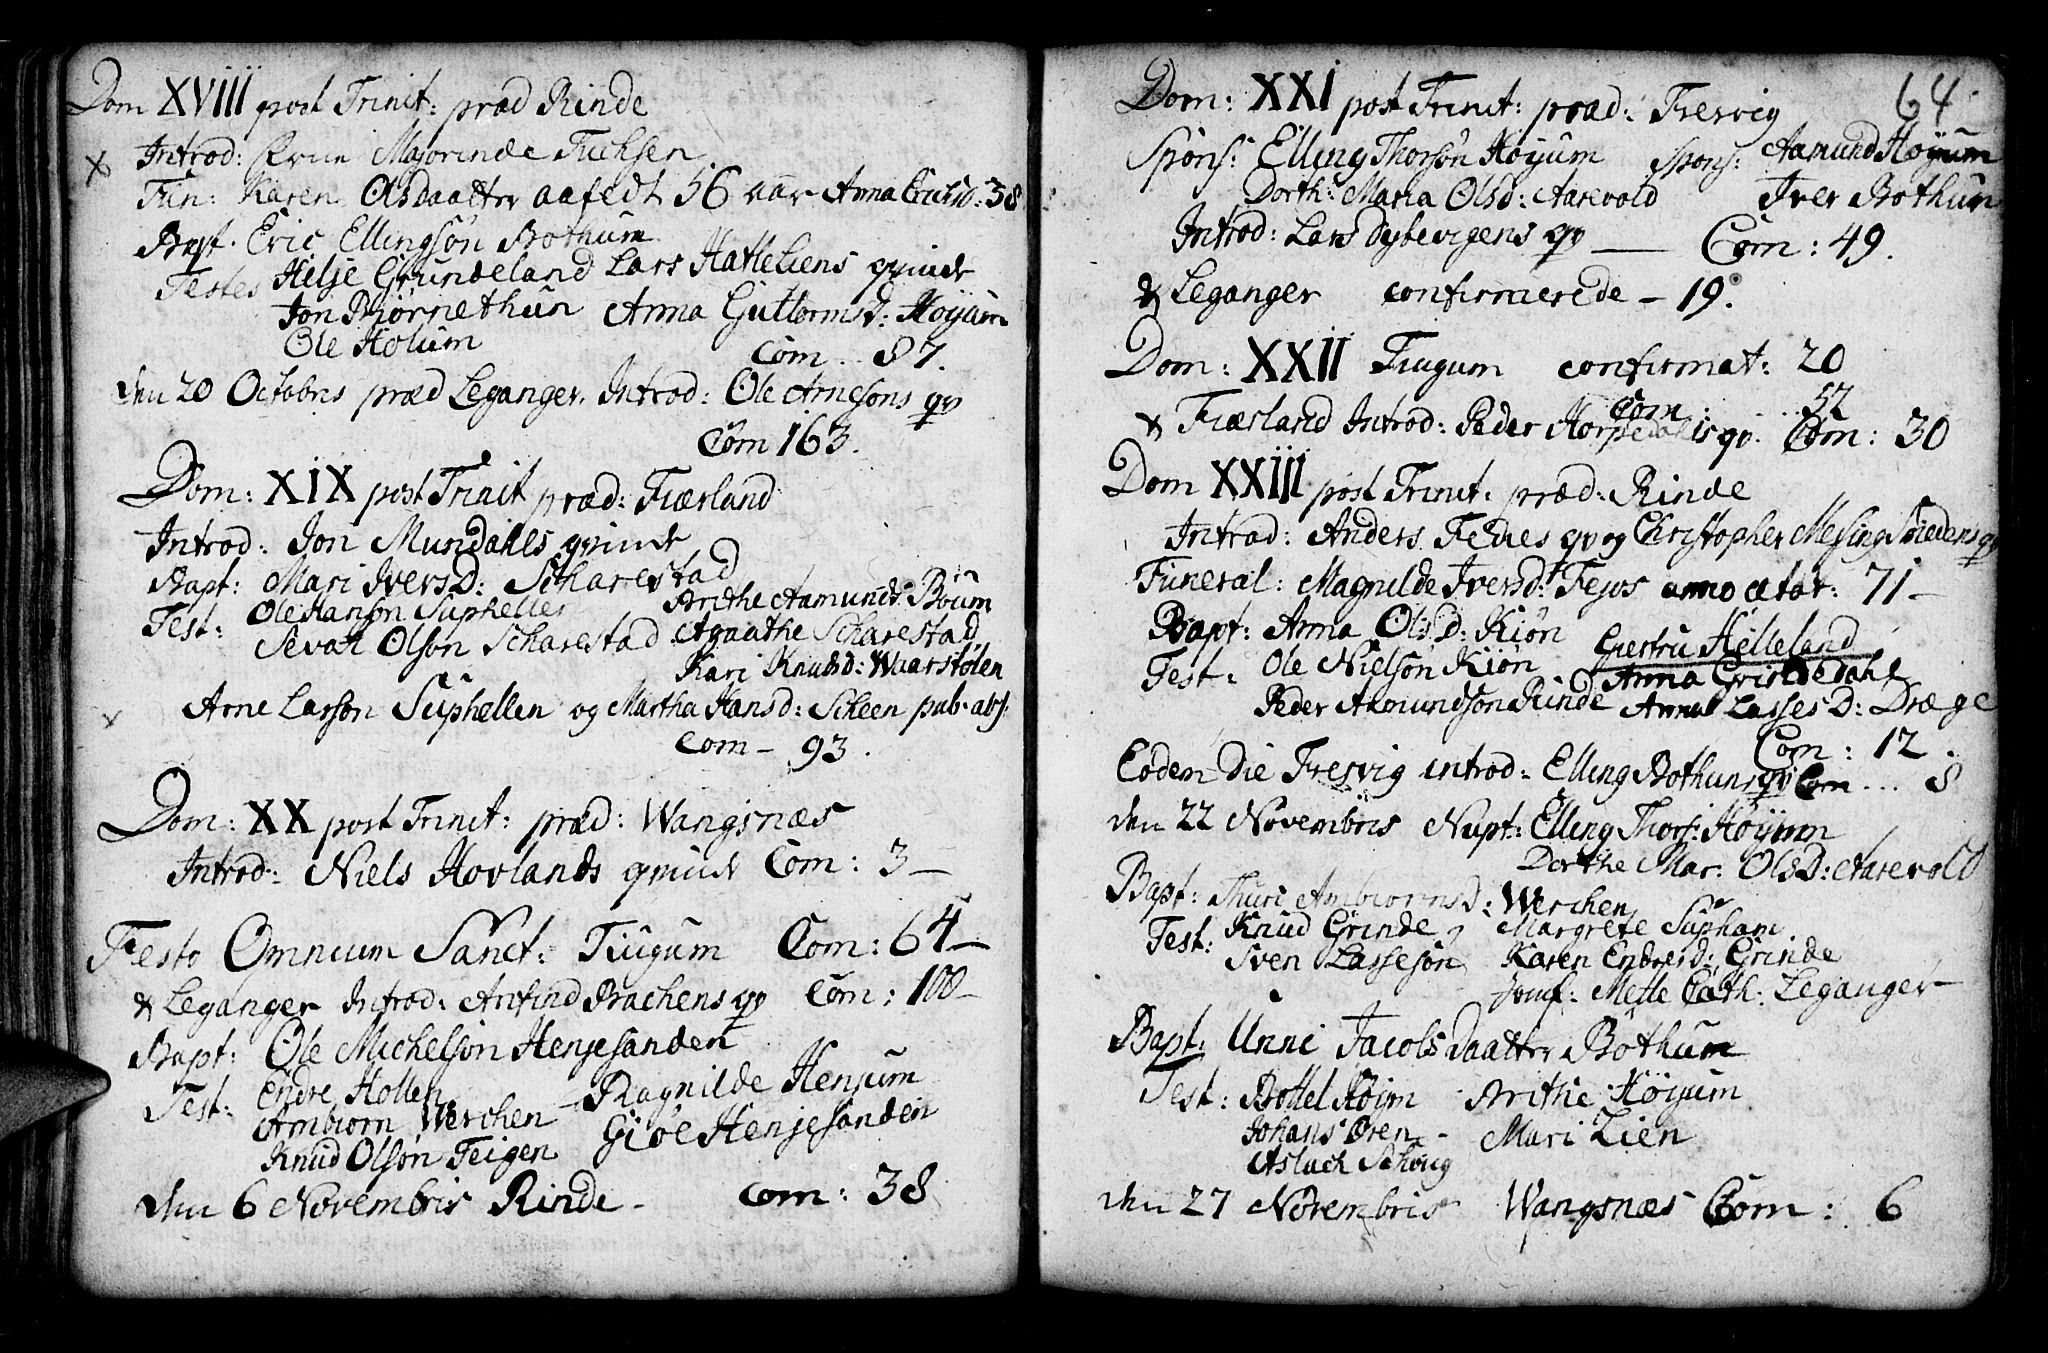 Dom XVIII post Trinit: præd Rinde
Introd: Majorinde Fuchsen
Fun: Karen Olsdaatter aafedt 56 aar Anna Erichsd: 38
Bapt. Eric Ellingsøn Bothum
Testes Helje Grundeland Lars Hatleliens qvinde
Jon Biørnethun Anna Guttormsd: Høyum
Ole Holum
Com. 87.
den 20 Octobris præd Leganger. Introd: Ole Arnesons qv
Com 163.
Dom: XIX post Trinit præd: Fiærland
Introd: Jon Mundahls qvinde
Bapt: Mari Iversd: Scharestad
Test: Ole Hanson Suphellen Brithe Aamunds: Bøum
Sevat Olson Scharestad Agaathe Scharestad
Kari Knudsd: Waarstølen
Arne Larson Suphellen og Martha Hansd: Scheen pub. abs.
Com - 93.
Dom: XX post Trinit: præd: Wangsnæs
Introd: Niels Hovlands qvinde Com: 3 -
Festo Omnium Sanct: Tiugum Com: 64 -
& Leganger Introd: Anfind Brachens qv Com: 100 -
Bapt: Ole Michelson Henjesanden
Test: Endre Hollen - Ragnilde Henjum
Ambiorn Werchen Giøe Henjesanden
Knud Olson Feigen
den 6 Novembris Rinde - Com: 38
64.
Dom: XXI post Trinit: præd: Fresvig
Spons: Elling Thorson Høyum Spons: Aamund Høyum
Dorth: Maria Olsd: Aarevold Iver Bothum
Introd: Lars Dybevigens qv — Com: 49.
& Leganger confirmerede - 19.
Dom: XXII Tiugum confirmat: 20
Com: 52
& Fiærland Introd: Peder Horpedahls qv. Com: 30
Dom XXIII post Trinit. præd: Rinde
Introd: Anders Fedies qv og Christopher Messing Smedens qv
Funeral: Magnilde Iversd: Fejos anno ætat: 71 -
Bapt: Anna Olsd: Kiøn Giertru Helleland
Test: Ole Nielson Kiøn Anna Grindedahl
Peder Aamundson Rinde Anna Lasses D: Dræge
Com: 12.
Eodem Die Fresvig introd: Elling Bothuns qv Com... 8
den 22 Novembris Nupt: Elling Thors: Høyum
Dorthe Mar: Olsd: Aarevold
Bapt: Thuri Ambiornsd: Werchen
Test: Knud Grinde, Margrete Supham
Sven Lasseson Karen Endresd: Grinde
Jomf: Mette Cath: Leganger
Bapt: Unni Jacobsdaatter Bothum
Test: Bottel Høim - Brithe Høyum
Johans Øren - Mari Lien
Aslach Schoug
den 27 Novembris Wangsnæs Com: 6